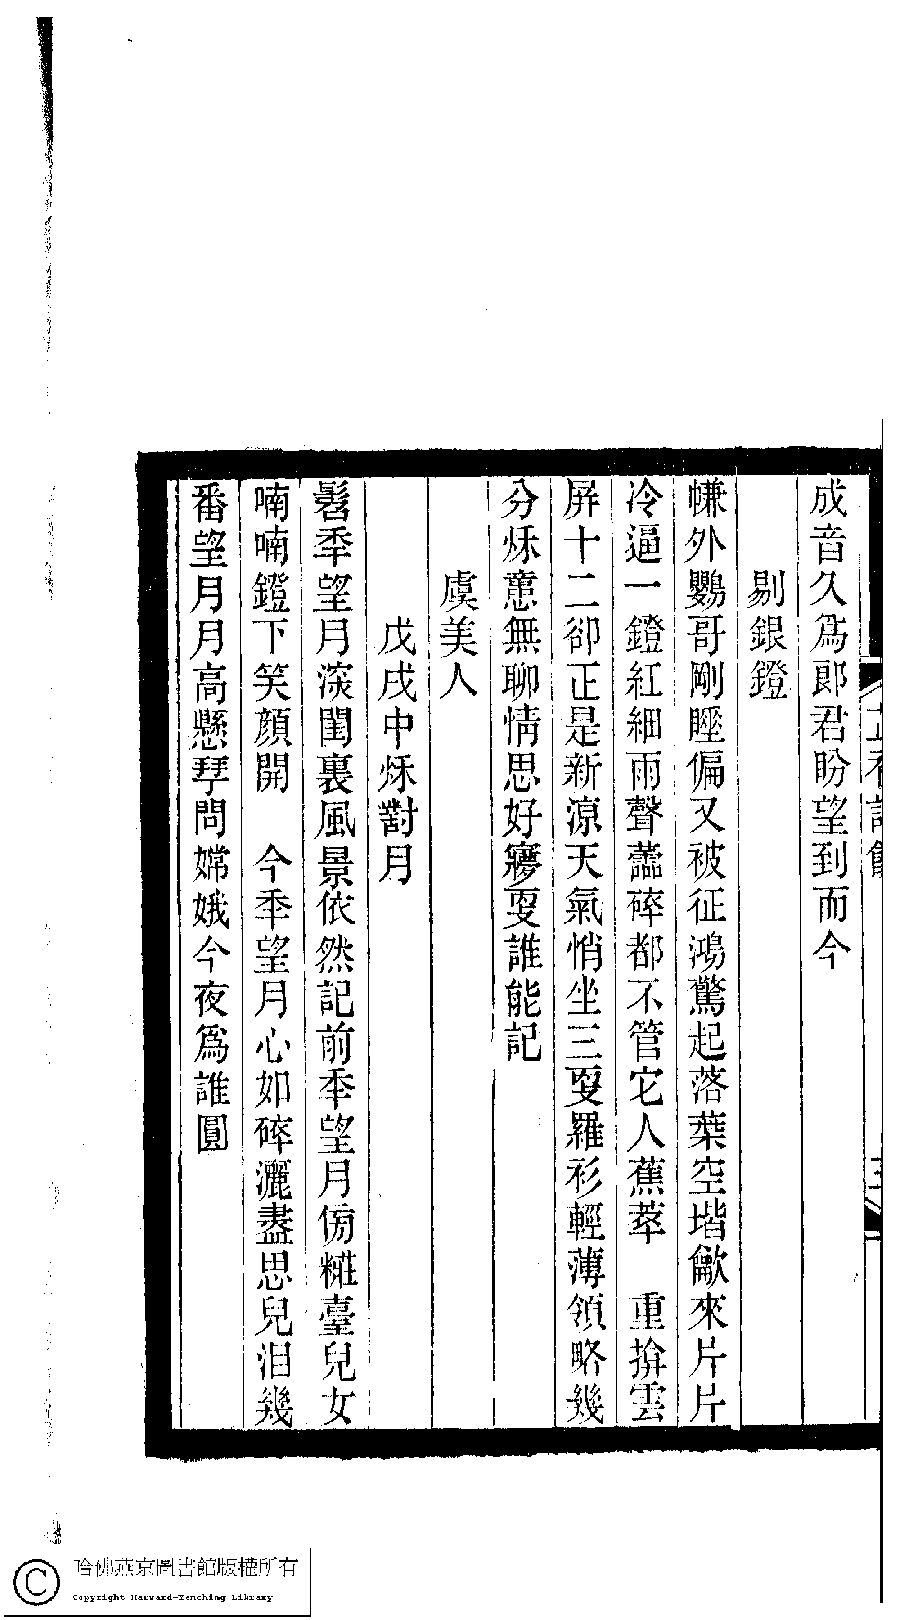 成音久爲郎君盼望到而今
剔銀鐙
幊外鸚哥剛睡偏又被征鴻驚起落葉空堦歗來片片
冷逼一鐙紅細雨聲蘦碎都不管它人蕉萃　重揜雲
屏十二卻正是新涼天氣悄坐三㪅羅衫輕薄領略幾
分秌意無聊情思好㝱㪅誰能記
虞美人
戊戌中秌對月
昔秊望月深閨裏風景依然記前秊望月傍糚臺兒女
喃喃鐙下笑顏開　今秊望月心如碎灑盡思兒泪幾
番望月月高懸㝵問嫦娥今夜爲誰圓
哈佛燕京圖書館版權所有
Copyright Harvard-Yenching Library